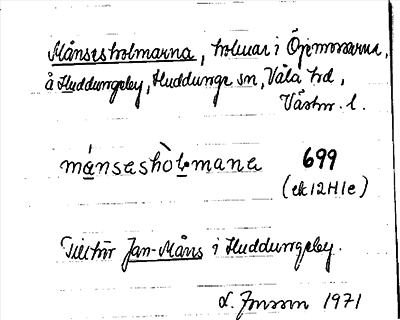 Månsesholmarna, holmar i Öjemossarna,
å Huddungeby, Huddunge sn, Våla hd,
Västm. l.
månseshòlmana 699
(ek 12H1e)
Tillhör Jan-Måns i Huddungeby.
L. Jonsson 1971